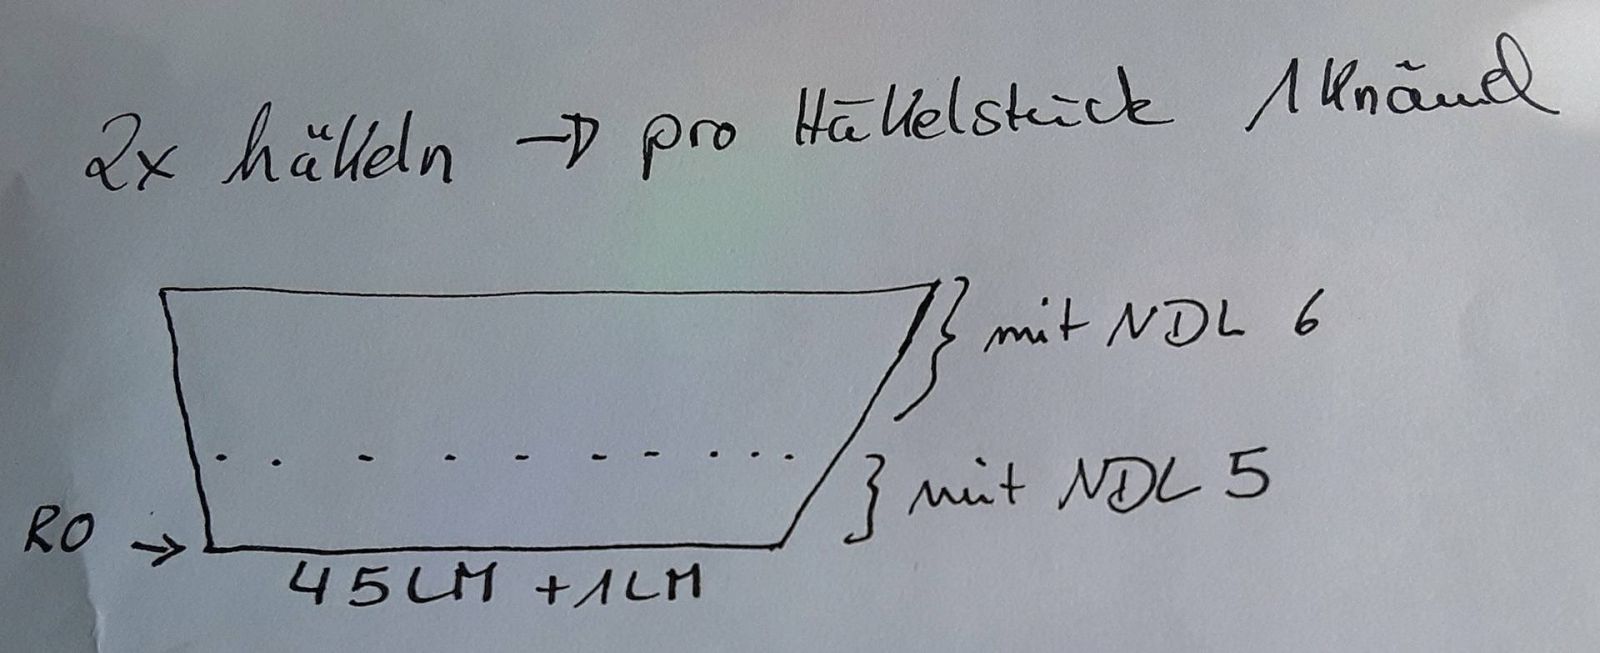 2x häkeln → pro Häkelstück 1 Knäuel
mit NDL 6
mit NDL 5
RO →
45LM +1LM